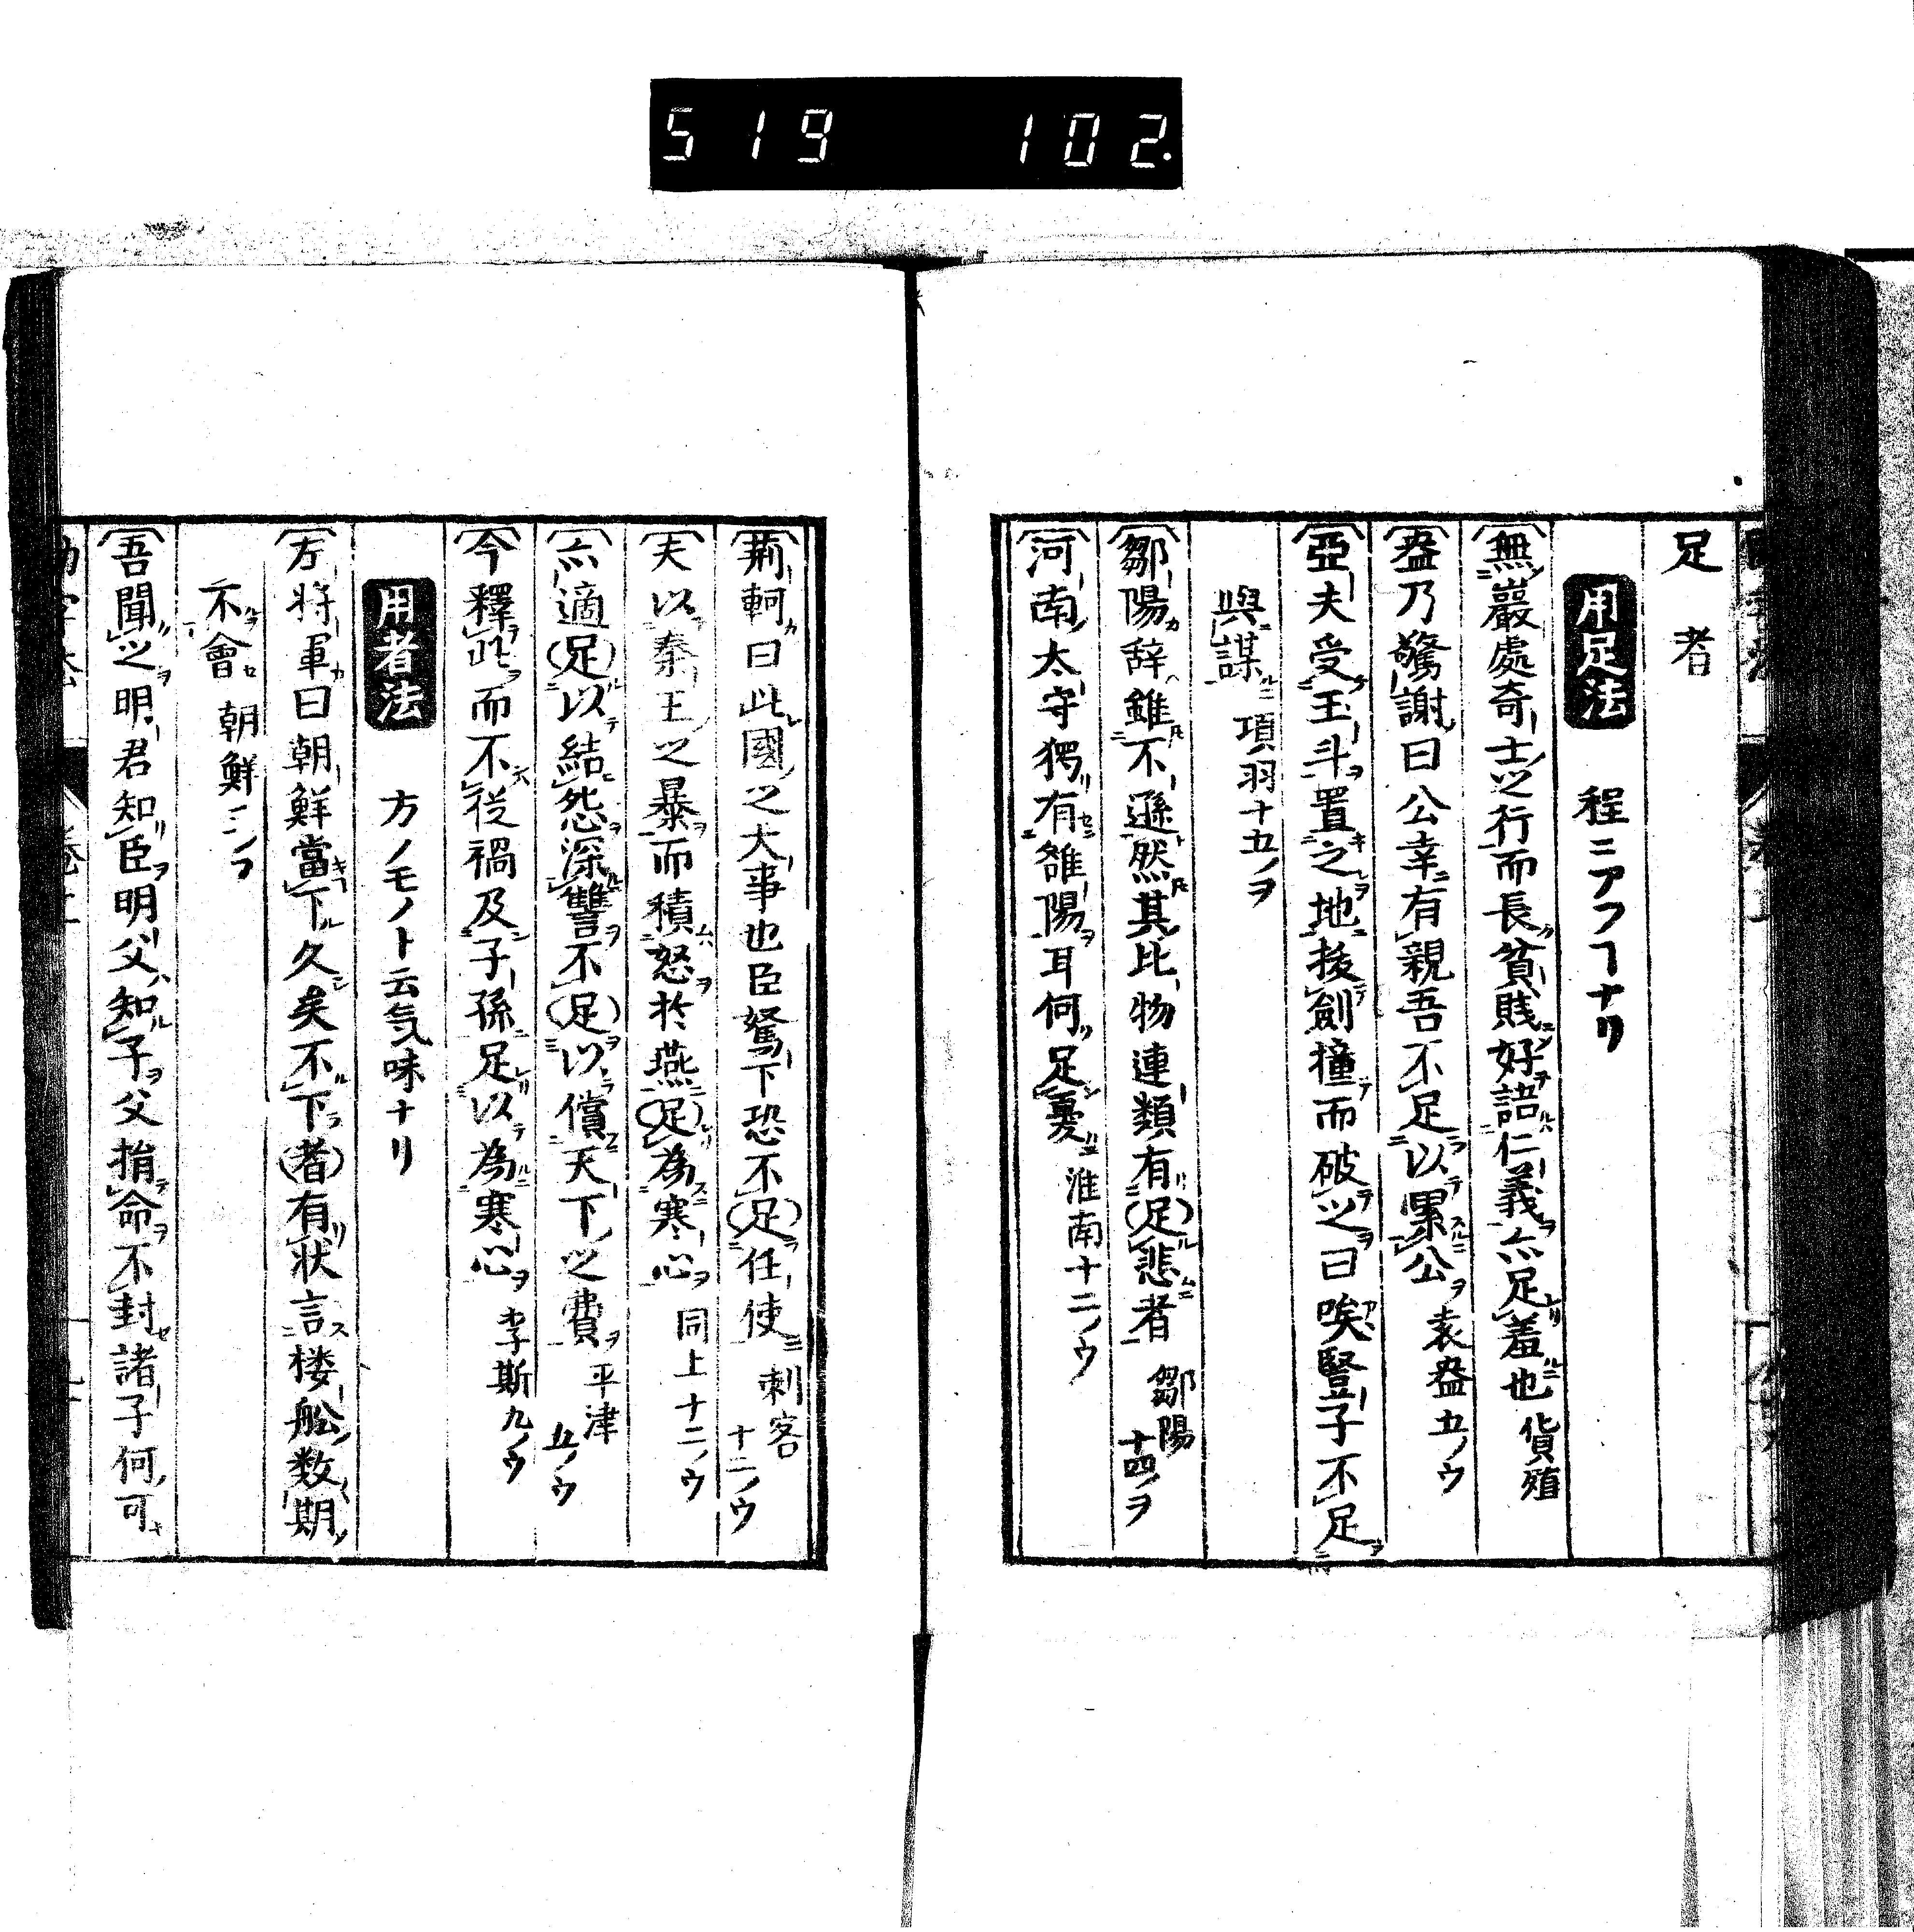 519 102.
足 者
用足法 程ニアフヿナリ
無巖處奇士之行而長貧賎好語仁義亦足羞也 貨殖
盎乃驚謝曰公幸有親吾不足以累公 袁盎 五ノウ
亞夫受玉斗置之地拔劍撞而破之曰唉豎子不足
與謀 項羽十五ノヲ
鄒陽辞雖不遜然其比物連類有(足)悲者 鄒陽 十四ノヲ
河南太守獨有雒陽耳何足憂 淮南十二ノウ
荊軻曰此國之大事也臣駑下恐不(足)任使 刺客 十二ノウ
夫以秦王之暴而積怒於燕(足)為寒心 同上十二ノウ
亦適(足)以結怨深讐不(足)以償天下之費 平津 五ノウ
今釋此而不從禍及子孫足以為寒心 李斯九ノウ
用者法 方ノモノト云気味ナリ
左将軍曰朝鮮當下久矣不下(者)有状言楼舩数期
不會 朝鮮
吾聞之明君知臣明父知子父捐命不封諸子何可